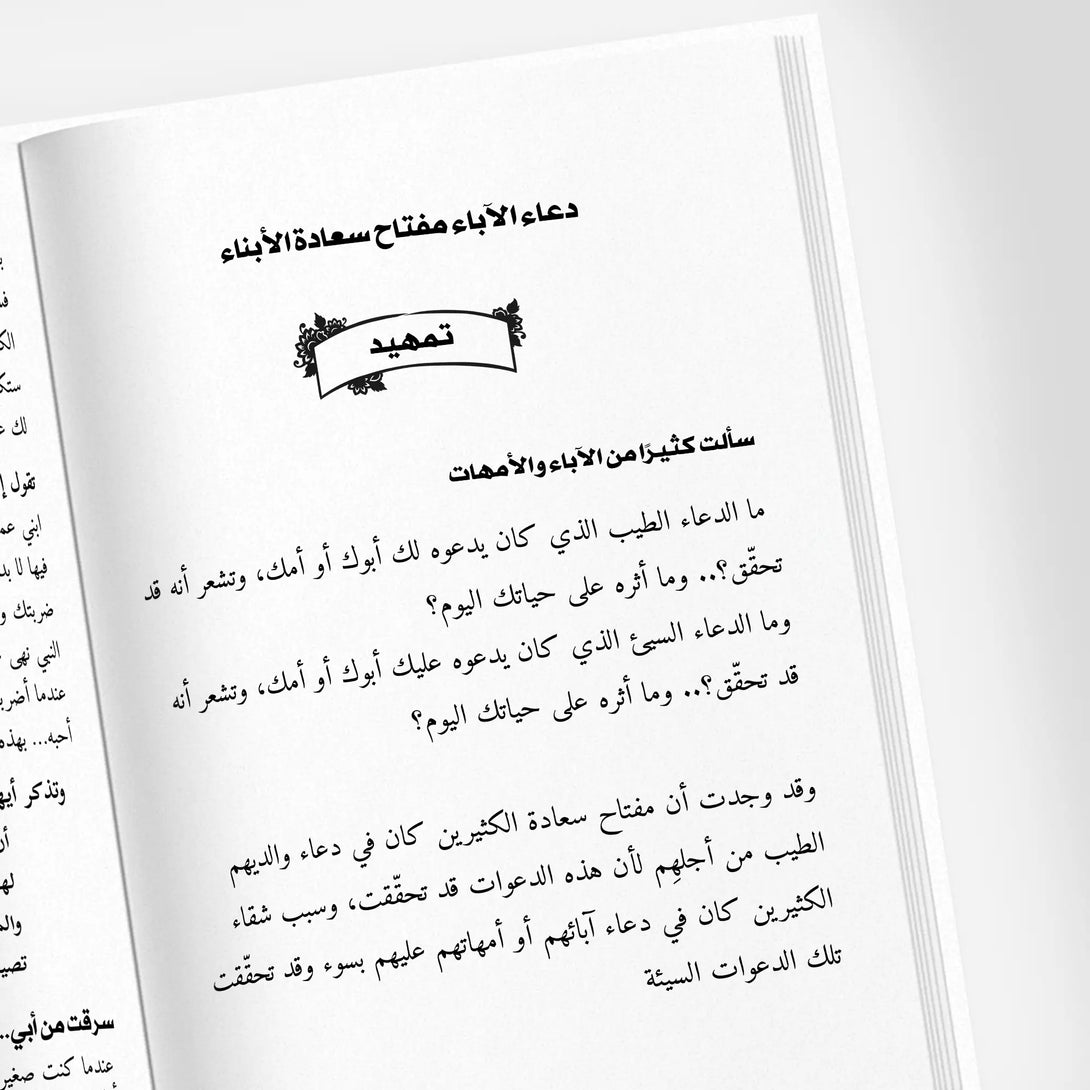 دعاء الآباء مفتاح سعادة الأبناء
تمهيد
سألت كثيرًا من الآباء والأمهات
ما الدعاء الطيب الذي كان يدعوه لك أبوك أو أمك، وتشعر أنه قد
تحقّق؟.. وما أثره على حياتك اليوم؟
وما الدعاء السيئ الذي كان يدعوه عليك أبوك أو أمك، وتشعر أنه
قد تحقّق؟.. وما أثره على حياتك اليوم؟
وقد وجدت أن مفتاح سعادة الكثيرين كان في دعاء والديهم
الطيب من أجلهِم لأن هذه الدعوات قد تحقّقت، وسبب شقاء
الكثيرين كان في دعاء آبائهم أو أمهاتهم عليهم بسوء وقد تحقّقت
تلك الدعوات السيئة
لك
تقول
ابني
فيها لا
ضربتك و
النبي نهى
عندما
أحبه... بهذه
وتذكر
سرقت من أبي..
عندما كنت